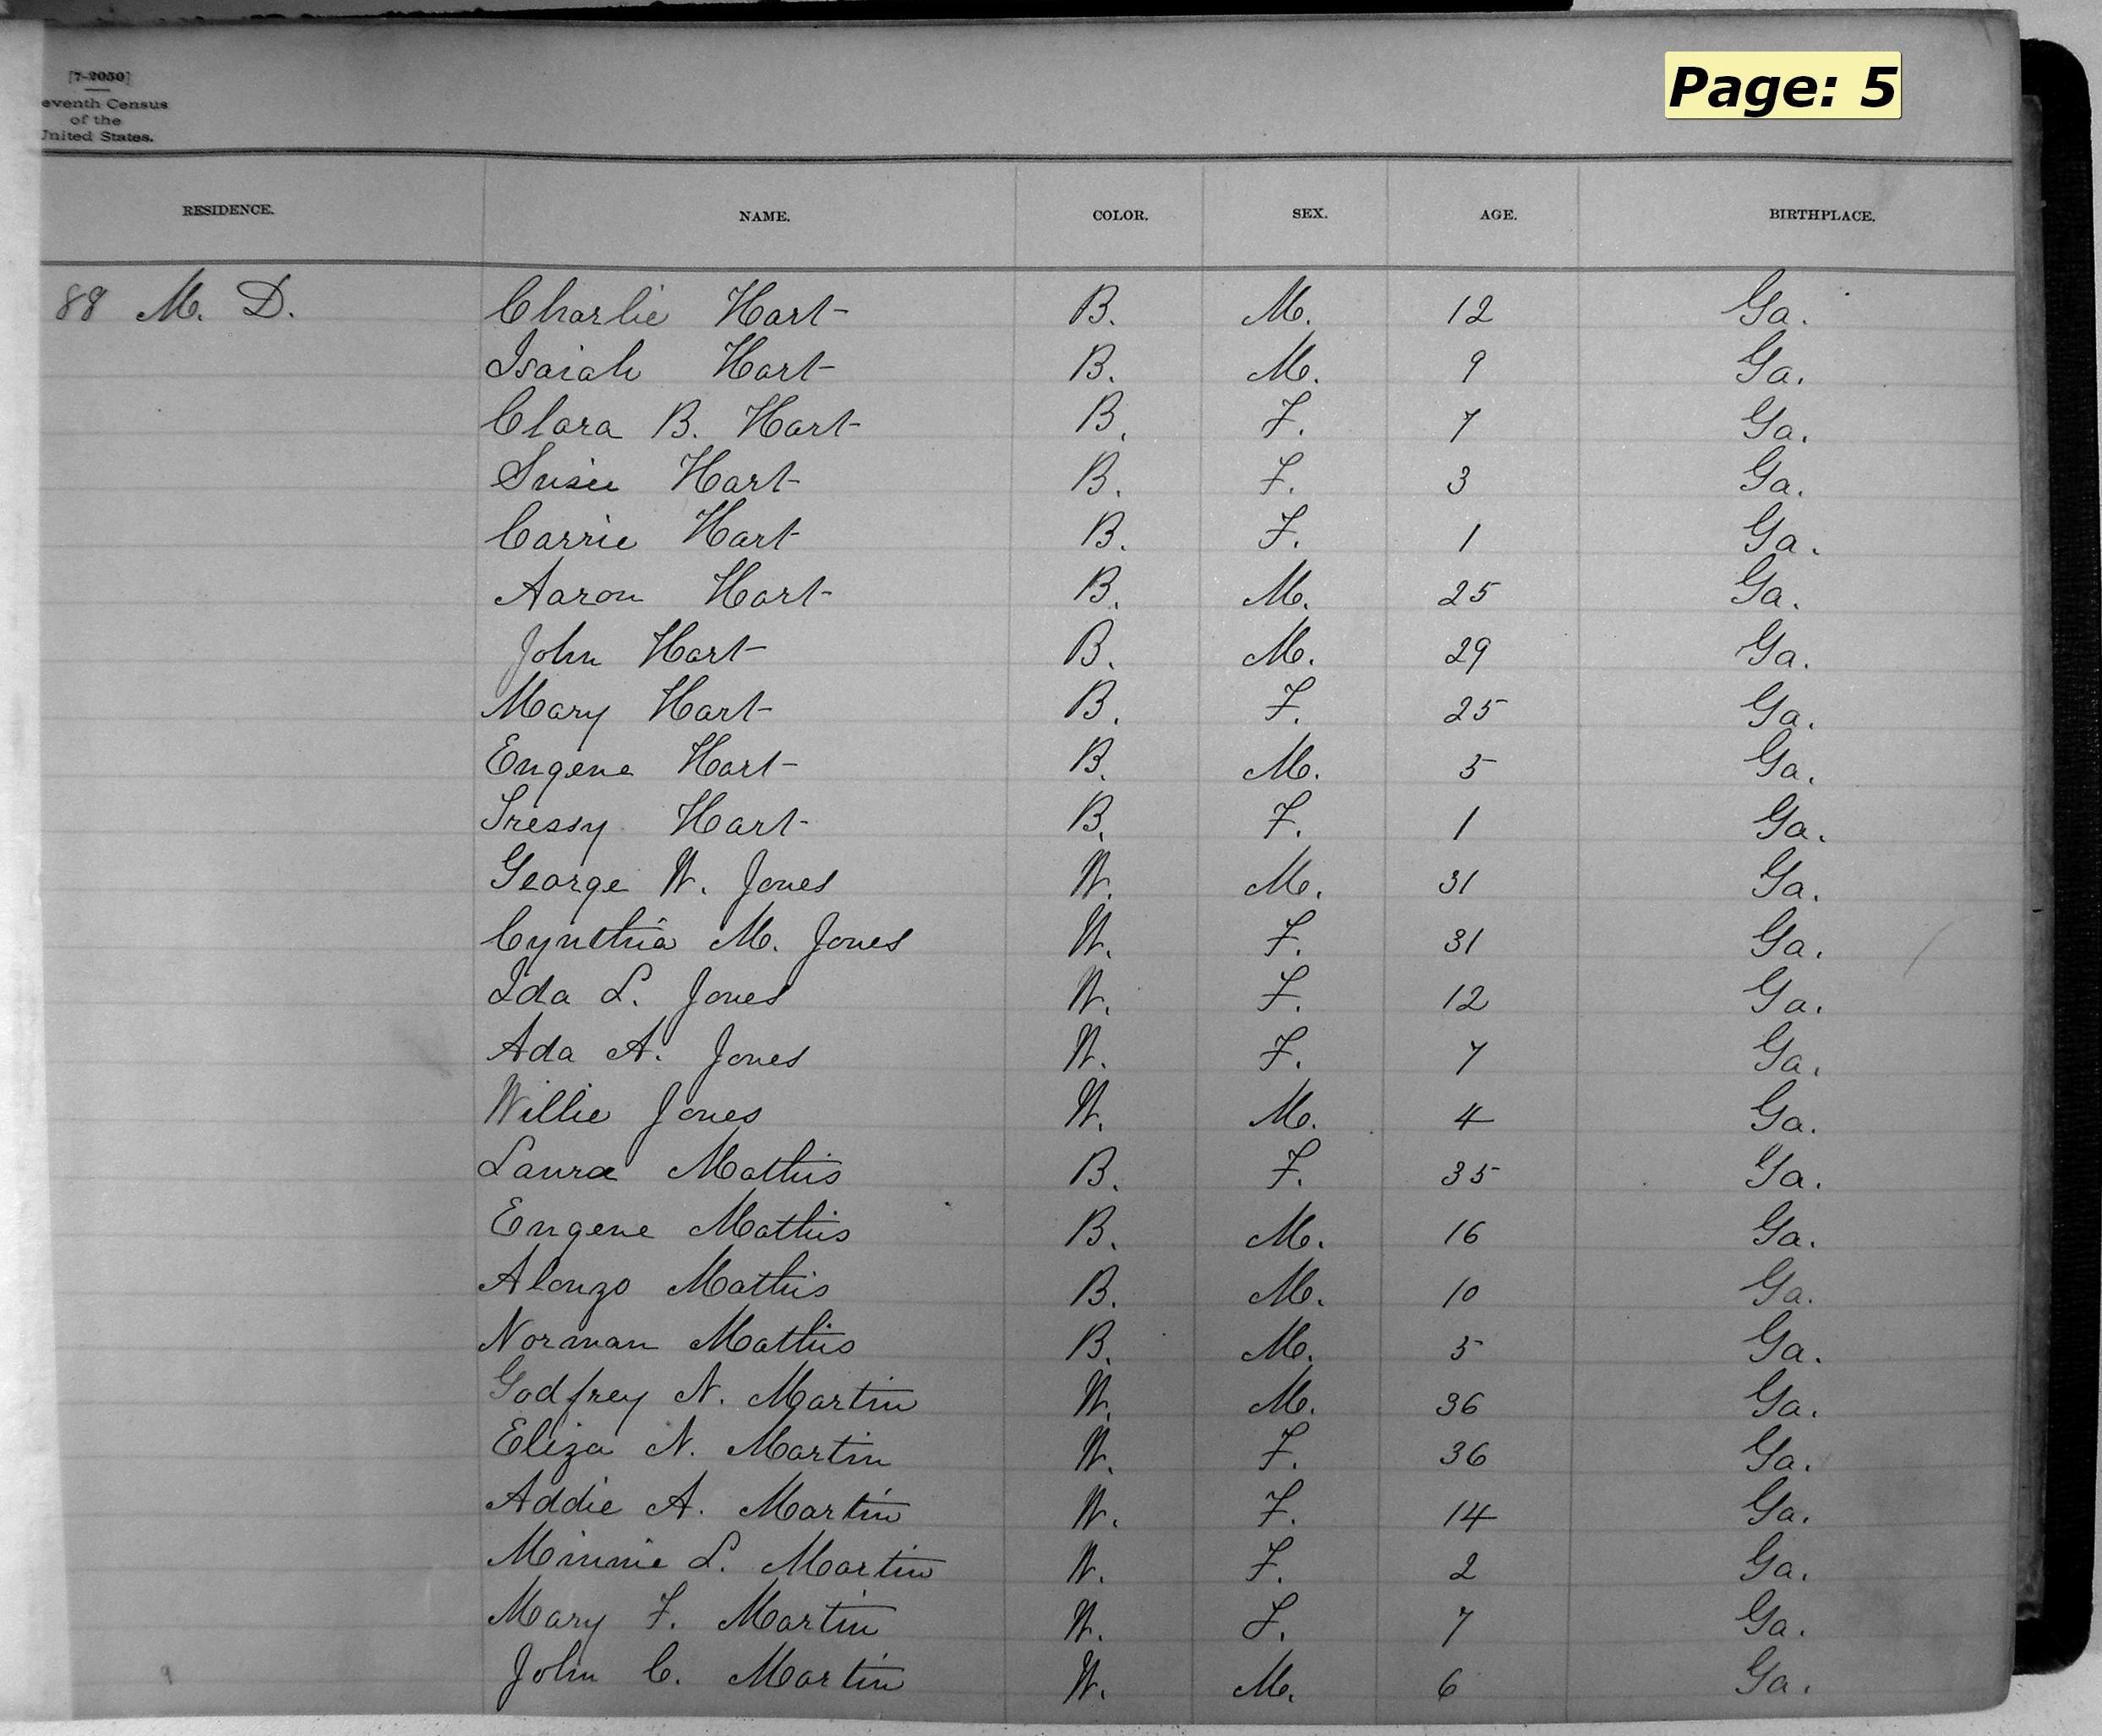 Page: 5
[7-2050]
eventh Census
of the
United States.
RESIDENCE. NAME. COLOR. SEX. AGE. BIRTHPLACE.
88 M. D. Charlie Hart B. M. 12 Ga.
Isaiah Hart B. M. 9 Ga.
Clara B. Hart B. F. 7 Ga.
Susie Hart B. F. 3 Ga.
Carrie Hart B. F. 1 Ga.
Aaron Hart B. M. 25 Ga.
John Hart B. M. 29 Ga.
Mary Hart B. F. 25 Ga.
Eugene Hart B. M. 5 Ga.
Tressy Hart B. F. 1 Ga.
George W. Jones W. M. 31 Ga.
Cynthia M. Jones W. F. 31 Ga.
Ida L. Jones W. F. 12 Ga.
Ada A. Jones W. F. 7 Ga.
Willie Jones W. M. 4 Ga.
Laura Mathis B. F. 35 Ga.
Eugene Mathis B. M. 16 Ga.
Alonzo Mathis B. M. 10 Ga.
Norman Mathis B. M. 5 Ga.
Godfrey N. Martin W. M. 36 Ga.
Eliza N. Martin W. F. 36 Ga.
Addie A. Martin W. F. 14 Ga.
Minnie L. Martin W. F. 2 Ga.
Mary F. Martin W. F. 7 Ga.
John C. Martin W. M. 6 Ga.